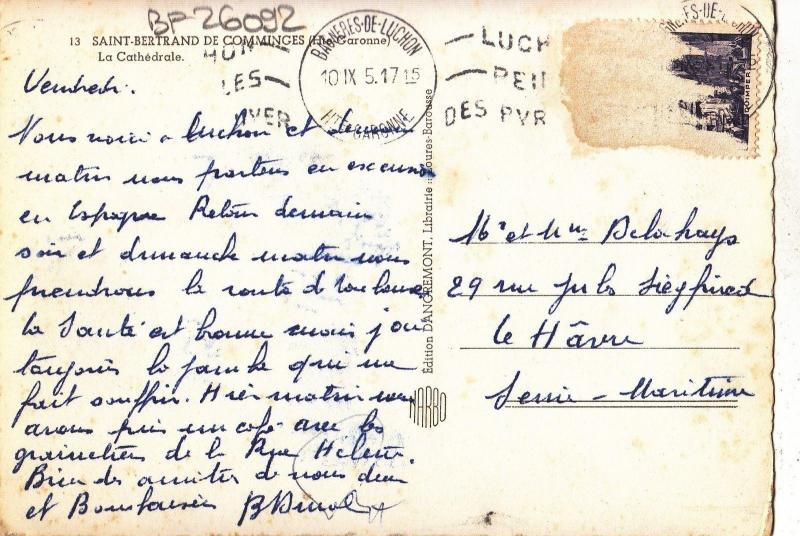 BF 26092
13 SAINT-BERTRAND DE COMMINGES (Hte Garonne)
La Cathédrale.
BAGNÈRES-DE-LUCHON
10 IX 5. 17 15
HTE GARONNE
LUCH
PEIN
DES PYR
LES
Vendredi.
Nous voici à Luchon et demain
matin nous partons en excursion
en Espagne Retour demain
soir et dimanche matin nous
prendrons la route de Toulouse
la Santé est bonne mais j'ai
toujours la jambe qui me
fait souffrir. Hier matin nous
avons pris un café avec les
grainetiers de la Rue Helene
Bien des amitiés de nous deux
et Bons baisers
Édition DANGREMONT, Librairie : Loures-Barousse
NARBO
Mr et Mme Delahays
29 rue Jules Siegfried
Le Hâvre
Seine-Maritime